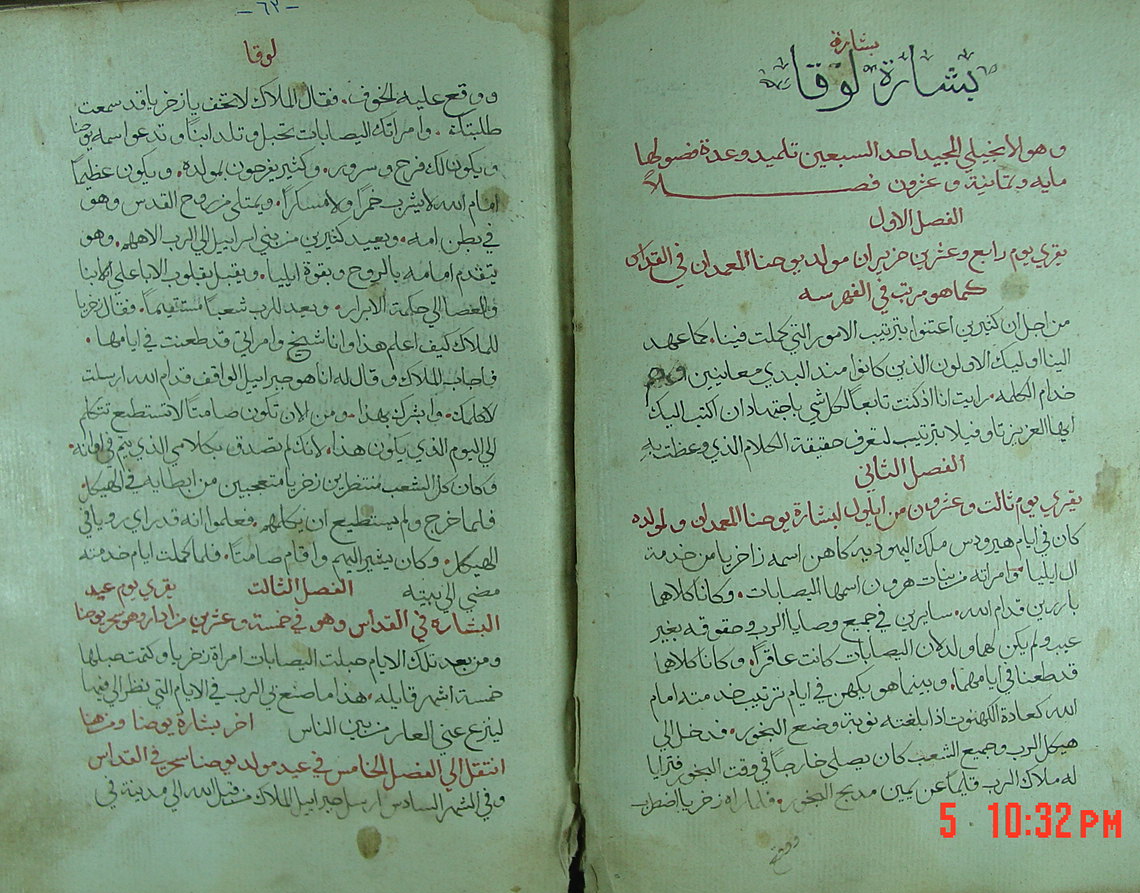 بشارة
بشارة لوقا
وهو لانجيلي المجيد احد السبعين تلميد وعدة فصولها
مايه وتمانية وعشرون فصــــــلاً
الفصل الاول
يقري يوم رابع وعشرين حزيران مولد يوحنا المعمدان في القداس
كما هو مرتب في الفهرسه
من اجل ان كثيرين اعتنوا بترتيب الامور التي كملت فينا. كما عهد
الينا اوليك الاولون الذين كانوا مند البدي معاينين وهم
خدام الكلمه. رايت انا اذ كنت تابعاً لكل شي باجتهاد ان اكتب اليك
ايها العزيز تاوفيلا بترتيب لتعرف حقيقة الكلام الذي وعظت به
الفصل الثاني
يقري يوم ثالث وعشرون من ايلول لبشارة يوحنا المعمدان ولمولده
كان في ايام هيرودس ملك اليهوديه كاهن اسمه زاخريا من خدمة
ال ايليا. وامراته من بنات هرون اسمها اليصابات. وكانا كلاهما
بارين قدام الله. سايرين في جميع وصايا الرب وحقوقه بغير
عيب ولم يكن لهما ولد لان اليصابات كانت عاقراً. وكانا كلاهما
قد طعنا في ايامهما. وبينما هو يكهن في ايام ترتيب خدمته امام
الله كعادة الكهنوت اذ ابلغته نوبة وضع البخور. فدخل الي
هيكل الرب وجميع الشعب كان يصلي خارجاً في وقت البخور فترايا
له ملاك الرب قايماً عن يمين مدبح البخور. فلما راه زخريا اضطرب
ووقع
- ٦٣ -
لوقا
ووقع عليه الخوف. فقال الملاك لا تخف يا زخريا قد سمعت
طلبتك. وامراتك اليصابات تحبل وتلد ابناً وتدعو اسمه يوحنا
ويكون لك فرح وسرور. وكثير يفرحون لمولده. ويكون عظيماً
امام الله لا يشرب خمراً ولا مسكراً. ويمتلي من روح القدس وهو
في بطن امه. ويعيد كثيرين من بني اسراييل الي الرب الاههم. وهو
يتقدم امامه بالروح وبقوة ايليا. ويقبل بقلوب الابا علي الابنا
والعصا الي حكمة الابرار. ويعد للرب شعباً مستقيماً. فقال زخريا
للملاك كيف اعلم هذا وانا شيخ وامراتي قد طعنت في ايامها.
فاجاب الملاك وقال له انا هو جبراييل الواقف قدام الله ارسلت
لاكلمك. وابشرك بهذا. ومن الان تكون صامتاً لا تستطيع تتكلم
الي اليوم الذي يكون هذا. لانك لم تصدق بكلامي الذي يتم في اوانه.
وكان كل الشعب منتظرين زخريا متعجبين من ابطايه في الهيكل.
فلما خرج ولم يستطيع ان يكلمهم. فعلموا انه قد راي رويا في
الهيكل. وكان يشير اليهم واقام صامتاً. فلما كملت ايام خدمته
مضي الي بيته الفصل الثالث يقري يوم عيد
البشاره في القداس وهو في خمسة وعشرين من ادار وهو سحر يوحنا
ومن بعد تلك الايام حبلت اليصابات امراة زخريا وكتمت حبلها
خمسة اشهر قايله. هذا ما صنع بي الرب في الايام التي نظر الي فيها
لينزع عني العار من بين الناس اخر بشارة يوحنا ومن هنا
انتقل الي الفصل الخامس في عيد مولد يوحنا سحر في القداس
وفي الشهر السادس ارسل جبراييل الملاك من قبل الله الي مدينة في
5 10:32 PM